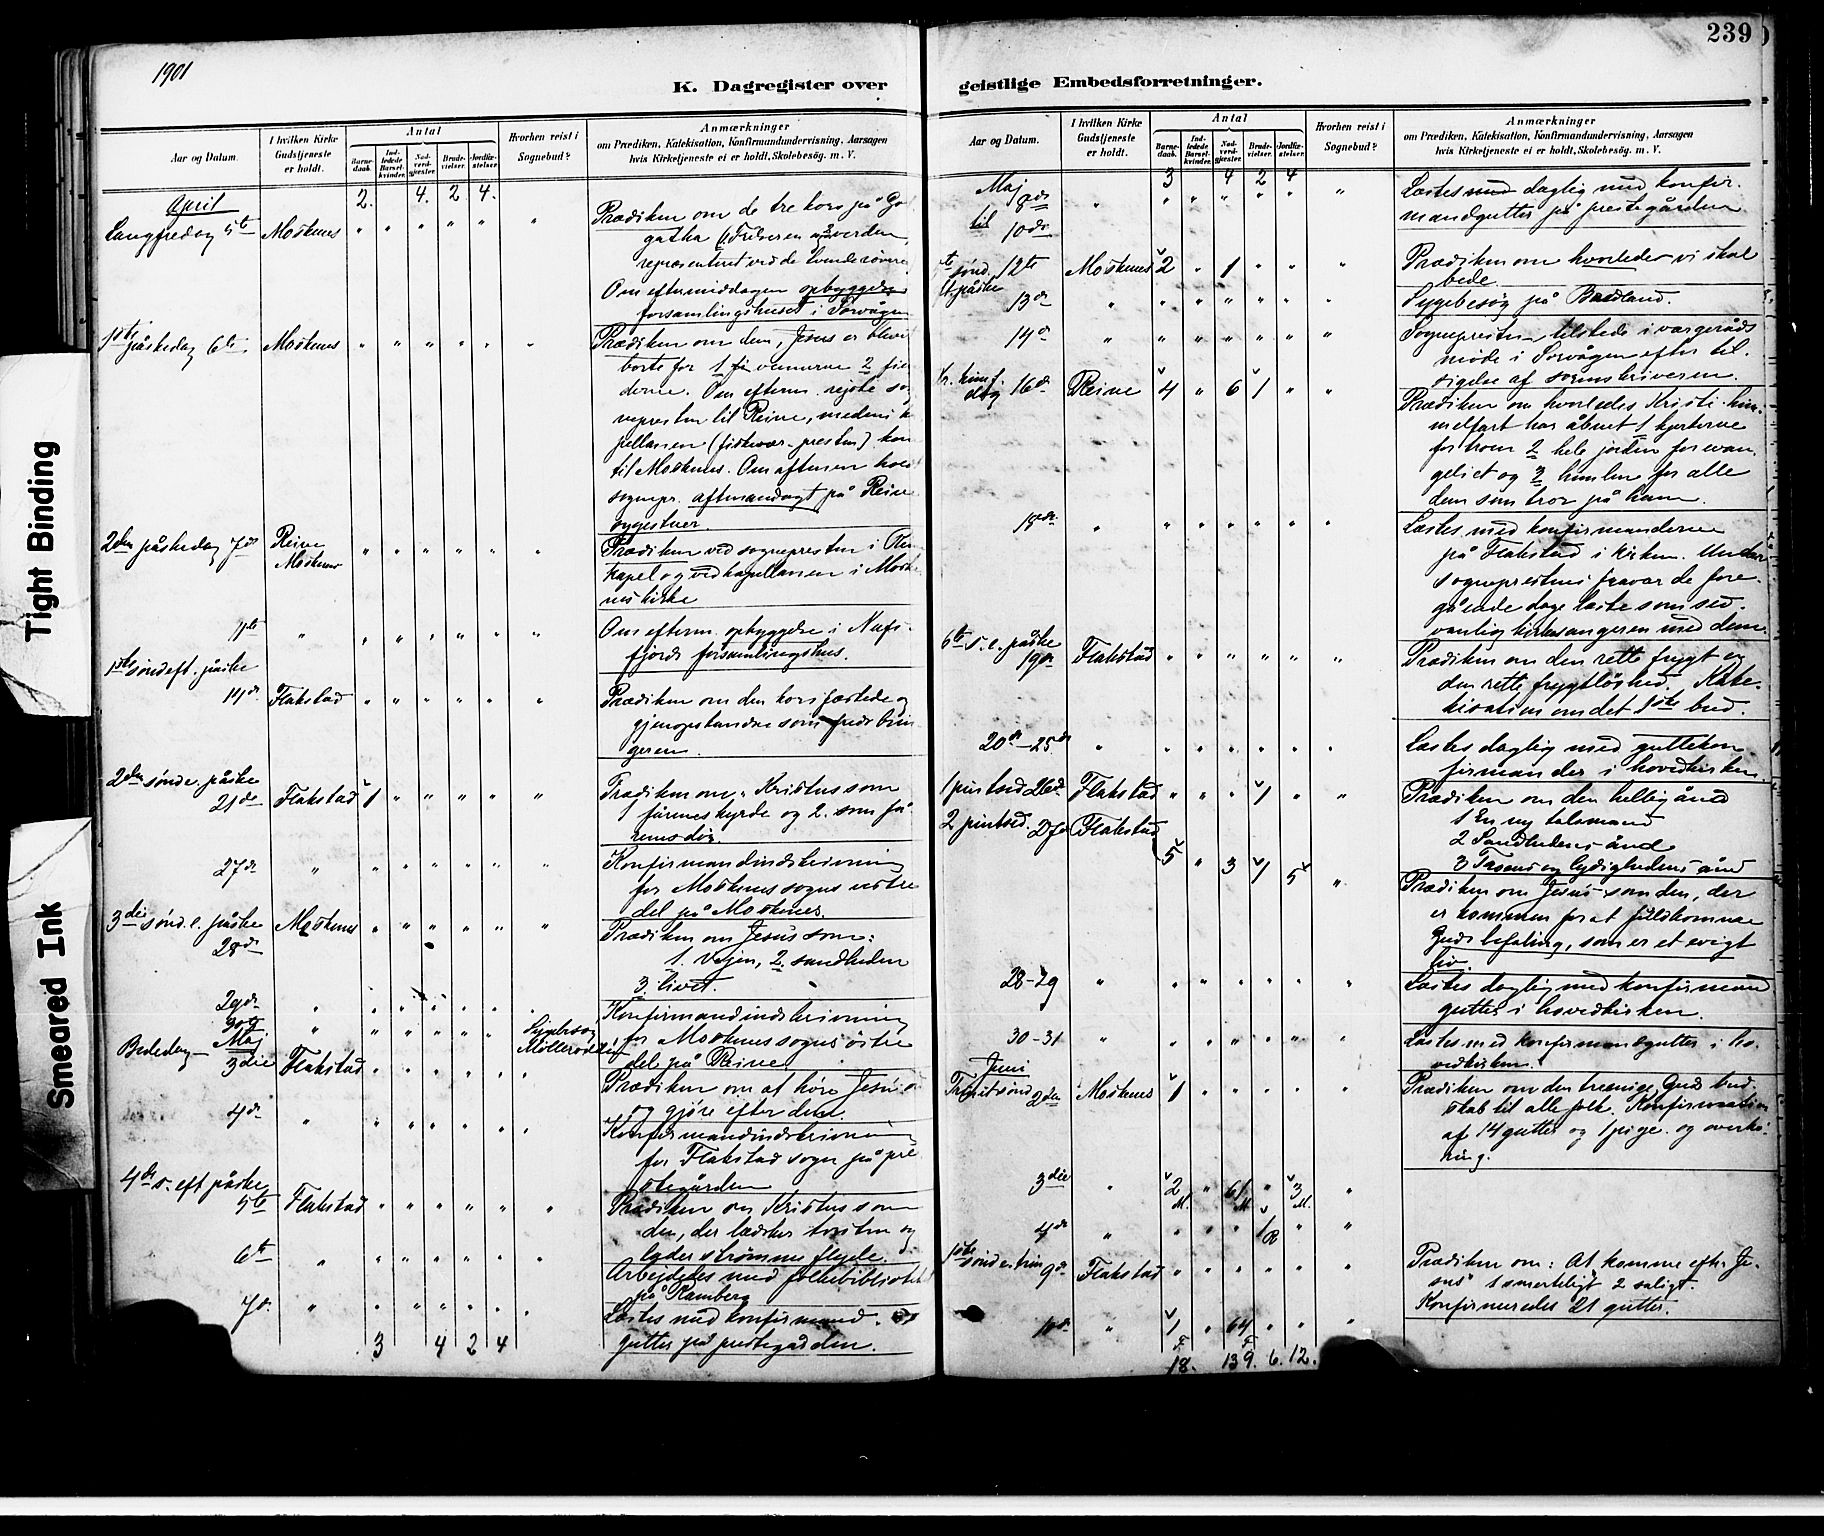 239
1901
K. Dagregister over
geistlige Embedsforretninger.
Aar og Datum.
I hvilken Kirke Gudstjeneste er holdt.
Antal
Barnedaab.
Indledede Barselkvinder.
Nadverdgjester.
Brudevielser.
Jordfæstelser.
Hvorhen reist i Sognebud?
Anmærkninger
om Prædiken, Katekisation, Konfirmandundervisning, Aarsagen
hvis Kirketjeneste ei er holdt, Skolebesøg. m. V.
April 2. 4. 2 4.
Langfredag 5te Moskenes " " " " " " Prædiken om de tre kors på Gol
gatha (1. Frelseren og 2 verden,
repræsenteret ved de tvende røvere
Om eftermiddagen opbyggelse
forsamlingshuset i Sørvågen
1ste påskedag 6te Moskenes " " " " " " Prædiken om dem, Jesus er blevet
borte for 1 vennerne 2 fien
derne. Om efterm. rejste sog
nepresten til Reine, medens ka
pellanen (fiskevær-presten) kom
til Moskenes. Om aftenen holdt
sognepr. aftenandagt på Reine
sygestuer.
2den påskedag 7de Reine
Moskenes " " " " " " Prædiken ved sognepresten i Rei
kapel og ved kapellanen i Moske
nes kirke
11te " " " " " " " Om efterm. opbyggelse i Nufs-
fjords forsamlingshus.
1ste sønd eft. påske
14de Flakstad " " " " " " Prædiken om den korsfæstede og
gjenopstandne som fredsbrin
geren.
2den sønd e. påske
21de Flakstad 1 " " " " " Prædiken om: Kristus som
1 fårenes hyrde og 2. som få
renes dør.
27de " " " " " " " Konfirmandindskrivning
for Moskenes sogns vestre
del på Moskenes.
3die sønd. e. påske
28de Moskenes " " " " " " Prædiken om Jesus som:
1. vejen, 2. sandheden
3. livet.
29de " " " " " " Konfirmandindskrivning
30te " " " " " " Sygebesøg for Moskenes sogns østre
Maj del på Reine
Bededag 3die Flakstad " " " " " " Prædiken om at høre Jesus
og gjøre efter dem
4de " " " " " " Konfirmandindskrivning
for Flakstad sogn på pre
stegården
4de s. eft påske
5te Flakstad " " " " " " Prædiken om Kristus som
den, der lædsker tørsten og
lader strømme flyde.
6te " " " " " " " Arbejdedes med folkebibliotek
på Ramberg
7de " " " " " " " Læstes med konfirmand-
gutter på prestegården.
3 4 2 4
Aar og Datum.
I hvilken Kirke Gudstjeneste er holdt.
Antal
Barnedaab.
Indledede Barselkvinder.
Nadverdgjester.
Brudevielser.
Jordfæstelser.
Hvorhen reist i Sognebud?
Anmærkninger
om Prædiken, Katekisation, Konfirmandundervisning, Aarsagen
hvis Kirketjeneste ei er holdt, Skolebesøg. m. V.
Maj 3 4 2 4
8de " " " " " " " Læstes med daglig med konfir-
til 10de mandgutter på prestegården
5te sønd. 12te Moskenes 2 " 1 " " " Prædiken om hvorledes vi skal
e. påske bede.
13de " " " " " " " Sygebesøg på Bæsland.
14de " " " " " " " Sognepresten tilstede i værgeråds
møde i Sørvågen efter til-
sigelse af sorenskriveren.
Kr. himf.
dag 16de Reine 4 " 6 1 " " Prædiken om hvorledes Kristi him-
melfart har åbnet 1 hjerterne
for ham 2 hele jorden for evan-
geliet og 3 himlen for alle
dem som tror på ham.
18de " " " " " " " Læstes med konfirmanderne
på Flakstad i kirken. Under
sogneprestens fravær de fore-
gående dage læste som sed-
vanlig kirkesangeren med dem.
6te s. e. påske
19de Flakstad " " " " " " Prædiken om den rette frygt og
den rette frygtløshed. Kate-
kisation om det 1ste bud.
20de - 25de " " " " " " " Læstes daglig med guttekon
firmander i hovedkirken.
1 pintsed 26de Flakstad " " " 1 " " Prædiken om den hellig ånd
2 pintsed. 27de Flakstad 1 En ny talsmand
2 Sandhedens ånd
5 " 3 1 5 " 3 Troens og lydighedens ånd
Prædiken om Jesus som den, der
er kommen for at fuldkomme
Guds befaling, som er et evigt
liv.
28-29 " " " " " " " Læstes daglig med konfirmand
gutter i hovedkirken.
30-31 " " " " " " " Læstes med konfirmandgutter i ho-
vedkirken.
Juni
Trinit sønd 2den Moskenes 1 " " " " " Prædiken om den treenige Guds bud-
skab til alle folk. Konfirmation
af 14 gutter og 1 pige. og overhø-
ring.
3die " 2 " 61 " 3 "
M. M M.
4de " " " " 1 " "
R
1ste sønd e trin 9de Flakstad " " " " " " Prædiken om: At komme efter Je-
sus 1 smerteligt 2 saligt.
Konfirmeredes 21 gutter.
10de " 1 " 64 " " "
F F
18. 139. 6. 12.
Tight Binding
Smeared Ink